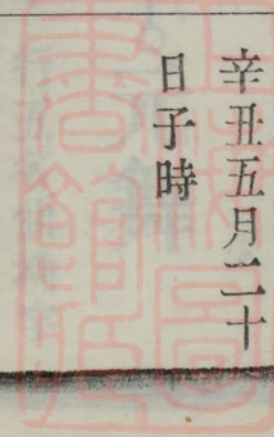 辛丑五月二十
日子時